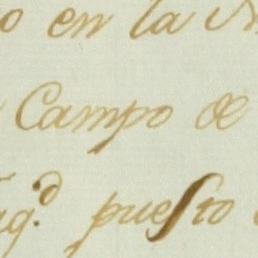 o en la
Campo de
aq.d puesto